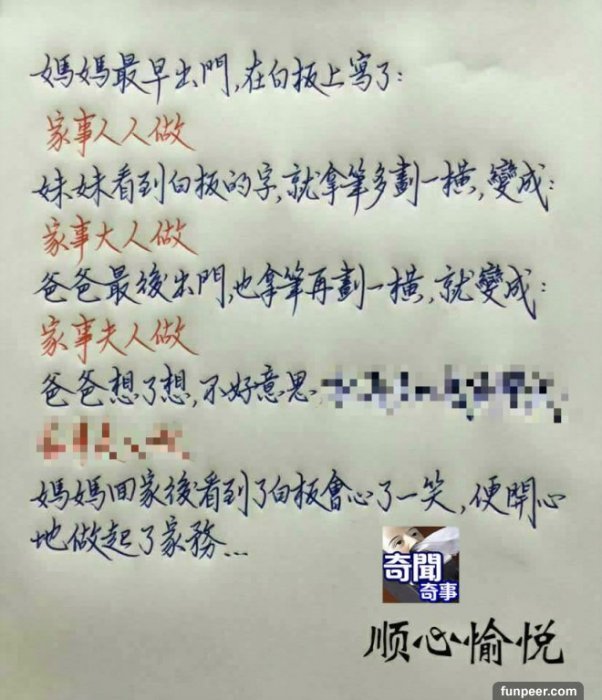 媽媽最早出門,在白板上寫了:
家事人人做
妹妹看到白板的字,就拿筆多劃一橫,變成:
家事大人做
爸爸最後出門,也拿筆再劃一橫,就變成:
家事夫人做
爸爸想了想,不好意思
媽媽回家後看到了白板會心了一笑,便開心
地做起了家務...
奇聞
奇事
顺心愉悦
funpeer.com